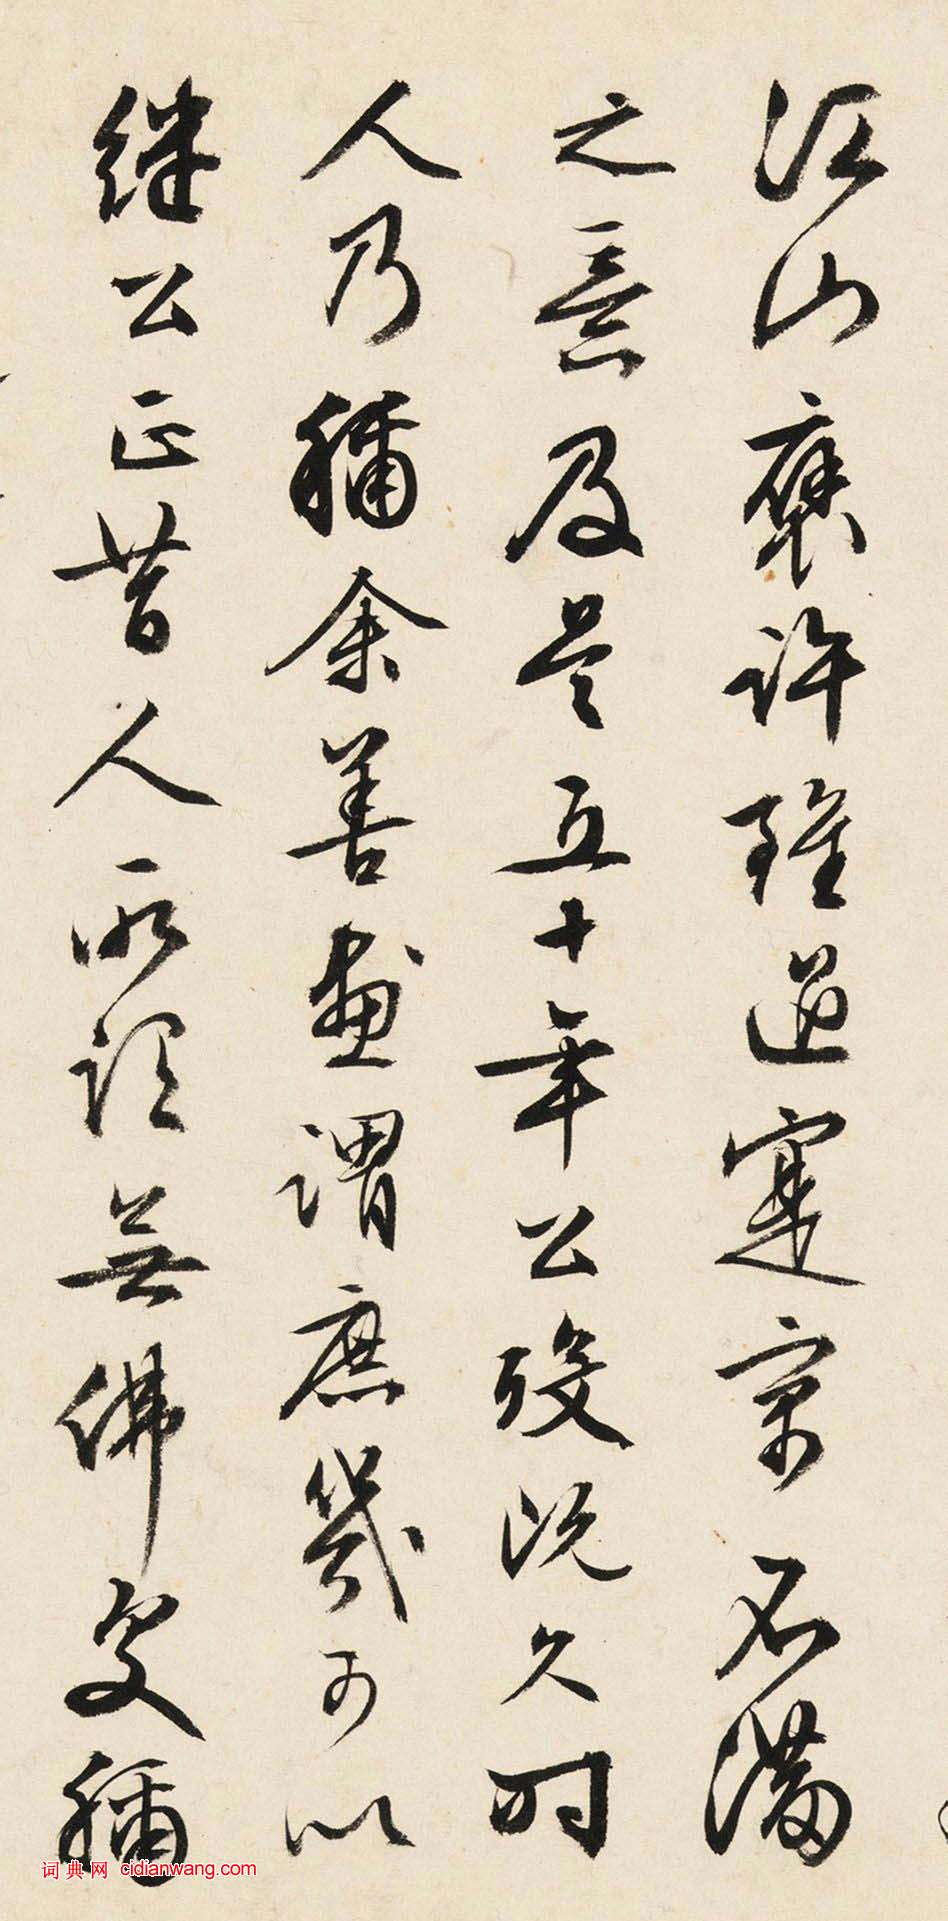 江山褒許雖過寔寓不滿
之意及是五十年公歿既久時
人乃稱余善畫謂庶幾可以
繼公正昔人所謂無佛處稱
词典网 cidianwang.com